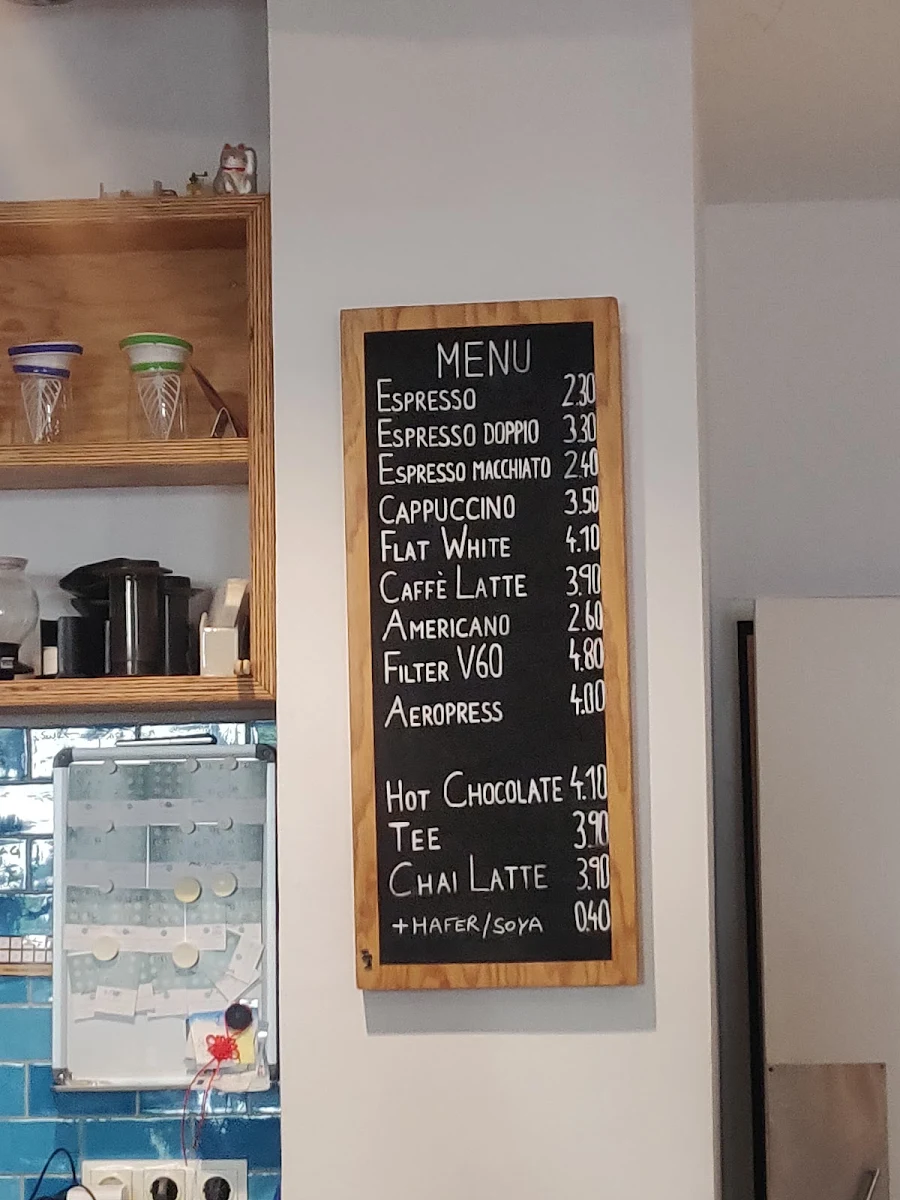 MENU
ESPRESSO 2.30
ESPRESSO DOPPIO 3.30
ESPRESSO MACCHIATO 2.40
CAPPUCCINO 3.50
FLAT WHITE 4.10
CAFFÈ LATTE 3.90
AMERICANO 2.60
FILTER V60 4.80
AEROPRESS 4.00
HOT CHOCOLATE 4.10
TEE 3.90
CHAI LATTE 3.90
+HAFER/SOYA 0.40